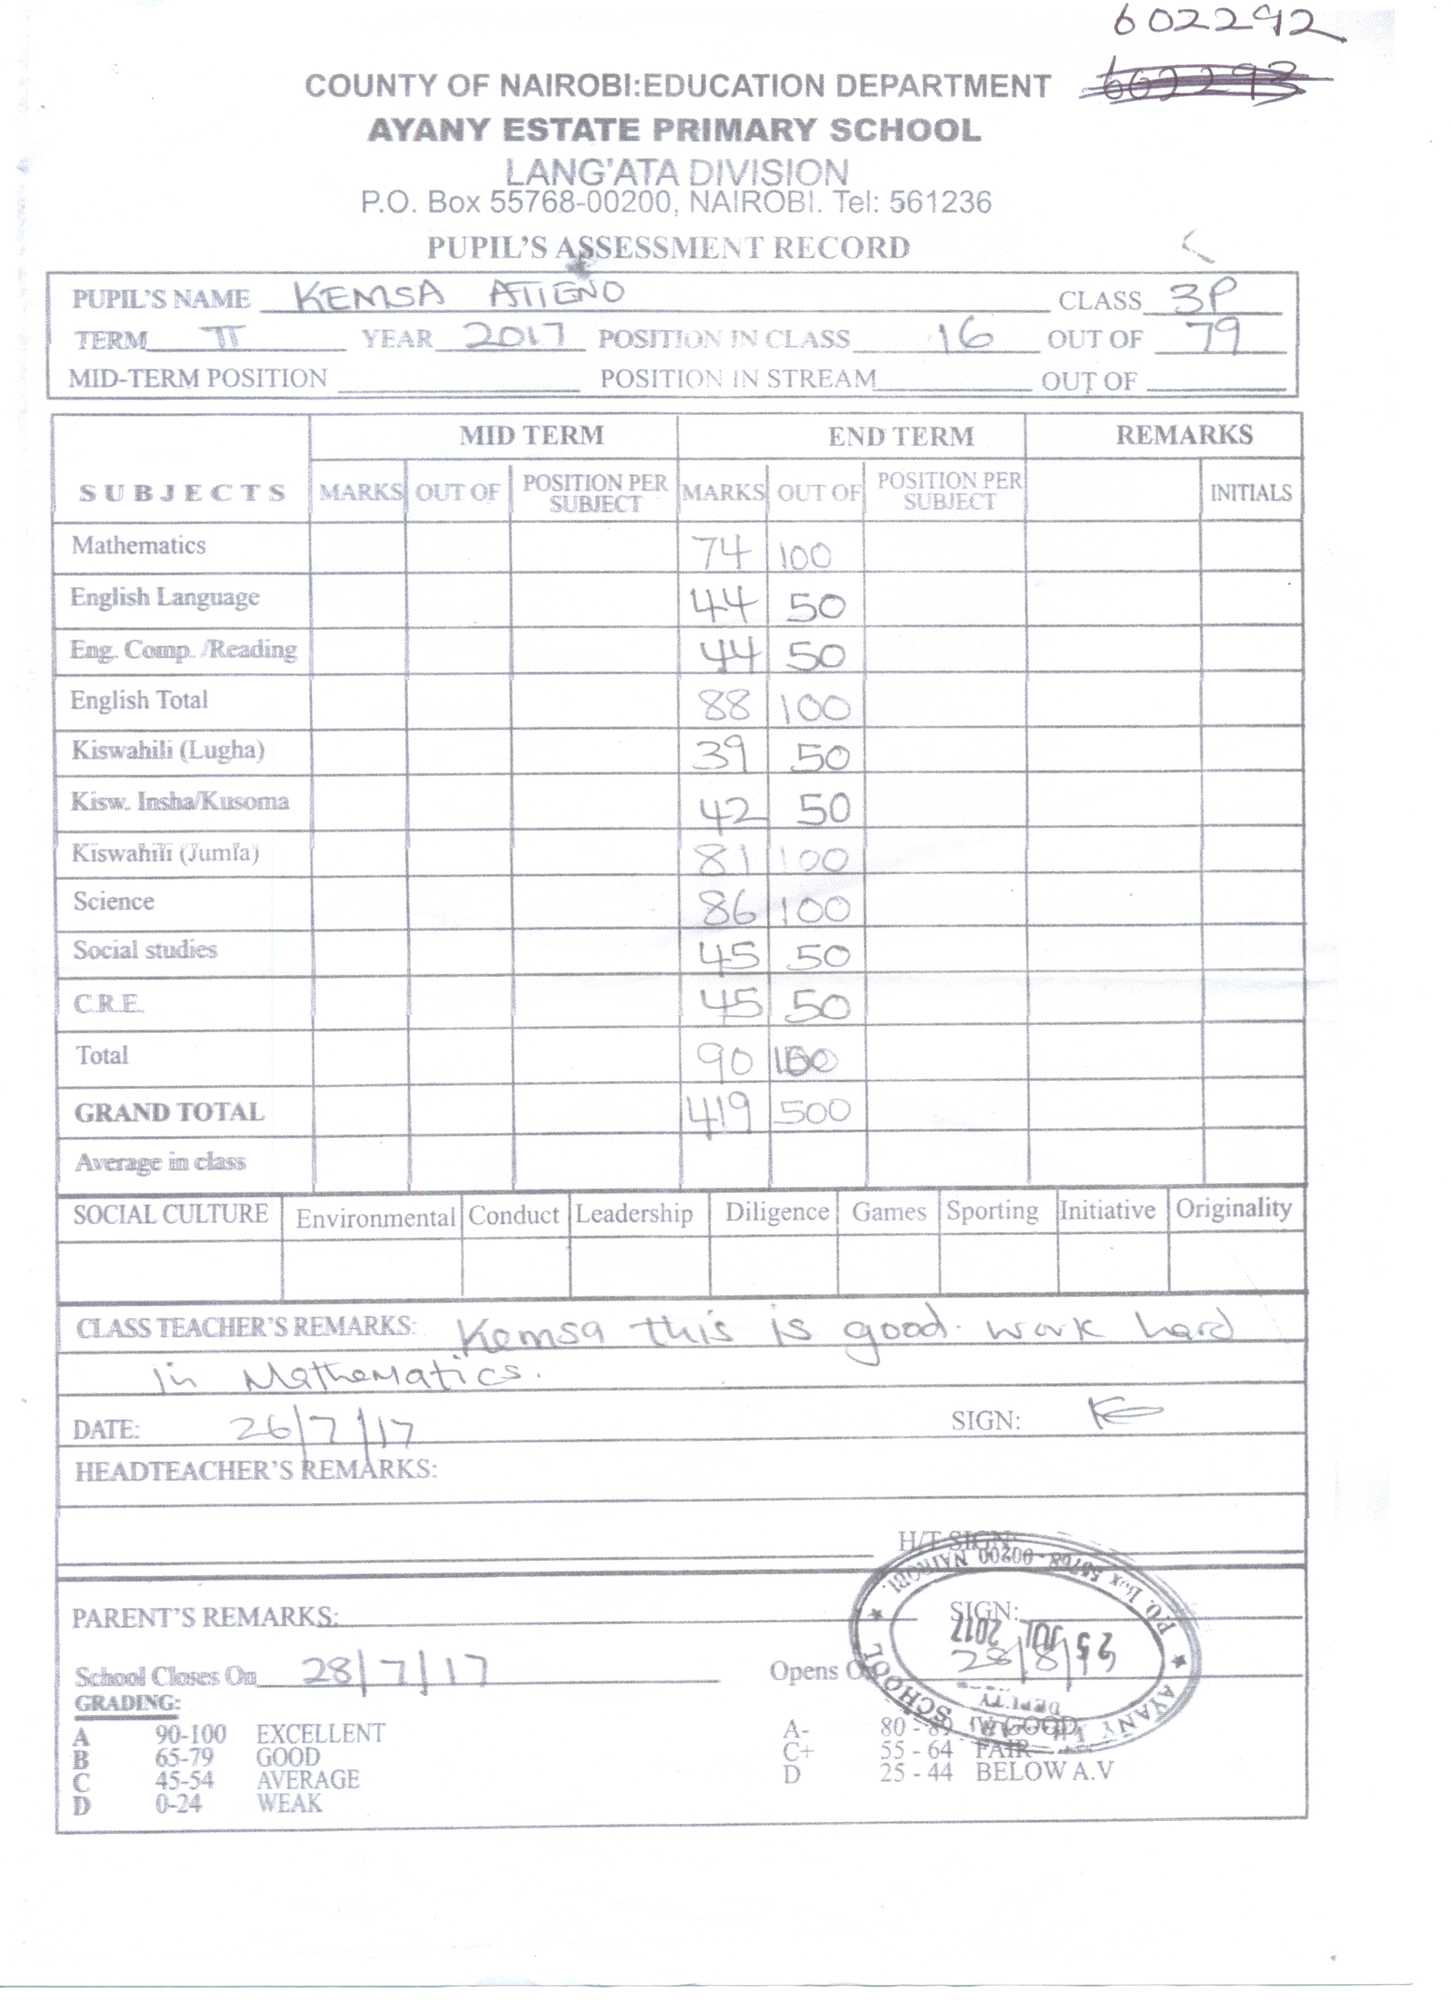 602292
COUNTY OF NAIROBI:EDUCATION DEPARTMENT
AYANY ESTATE PRIMARY SCHOOL
LANG'ATA DIVISION
P.O. Box 55768-00200, NAIROBI. Tel: 561236
PUPIL'S ASSESSMENT RECORD
PUPIL'S NAME KEMSA ATIENO CLASS 3P
TERM II YEAR 2017 POSITION IN CLASS 16 OUT OF 79
MID-TERM POSITION POSITION IN STREAM OUT OF
MID TERM END TERM REMARKS
SUBJECTS MARKS OUT OF POSITION PER SUBJECT MARKS OUT OF POSITION PER SUBJECT INITIALS
Mathematics 74 100
English Language 44 50
Eng. Comp. /Reading 44 50
English Total 88 100
Kiswahili (Lugha) 39 50
Kisw. Insha/Kusoma 42 50
Kiswahili (Jumla) 81 100
Science 86 100
Social studies 45 50
C.R.E. 45 50
Total 90 100
GRAND TOTAL 419 500
Average in class
SOCIAL CULTURE Environmental Conduct Leadership Diligence Games Sporting Initiative Originality
CLASS TEACHER'S REMARKS: Kemsa this is good. work hard
in Mathematics.
DATE: 26/7/17 SIGN:
HEADTEACHER'S REMARKS:
H/T SIGN:
PARENT'S REMARKS: SIGN:
School Closes On 28/7/17 Opens 28/8/17
AYANY SCHOOL P.O. Box 55768 - 00200 NAIROBI
25 JUL 2017
DEPUTY
GRADING:
A 90-100 EXCELLENT A- 80 - 89 V. GOOD
B 65-79 GOOD C+ 55 - 64 FAIR
C 45-54 AVERAGE D 25 - 44 BELOW A.V
D 0-24 WEAK